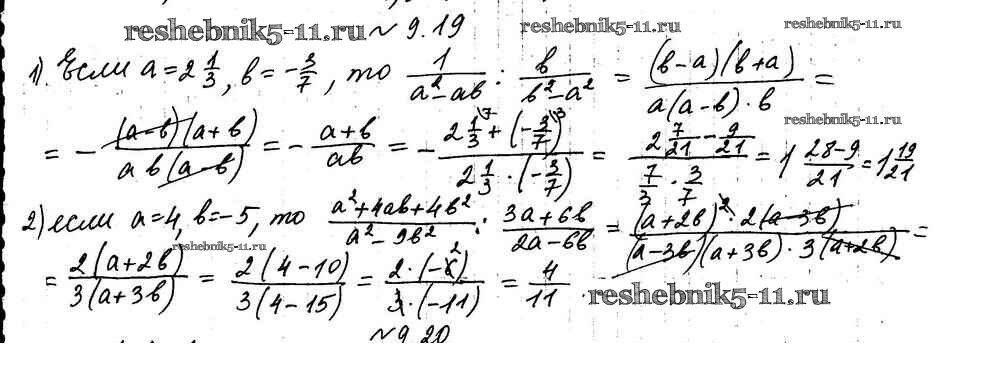 reshebnik5-11.ru № 9.19 reshebnik5-11.ru reshebnik5-11.ru
1). Если a = 2 1/3, b = -3/7, то 1/(a² - ab) : b/(b² - a²) = (b-a)(b+a)/(a(a-b)·b) =
= - (a-b)(a+b)/(ab(a-b)) = - (a+b)/(ab) = - (2 1/3\7 + (-3/7\3))/(2 1/3 · (-3/7)) = (2 7/21 - 9/21)/(7/3 · 3/7) = 1 (28-9)/21 = 1 19/21
reshebnik5-11.ru
2) если a = 4, b = -5, то (a² + 4ab + 4b²)/(a² - 9b²) : (3a + 6b)/(2a - 6b) = (a+2b)² · 2(a-3b)/((a-3b)(a+3b) · 3(a+2b)) =
reshebnik5-11.ru
= 2(a+2b)/(3(a+3b)) = 2(4-10)/(3(4-15)) = 2·(-6)²/(3·(-11)) = 4/11.
reshebnik5-11.ru
№ 9.20